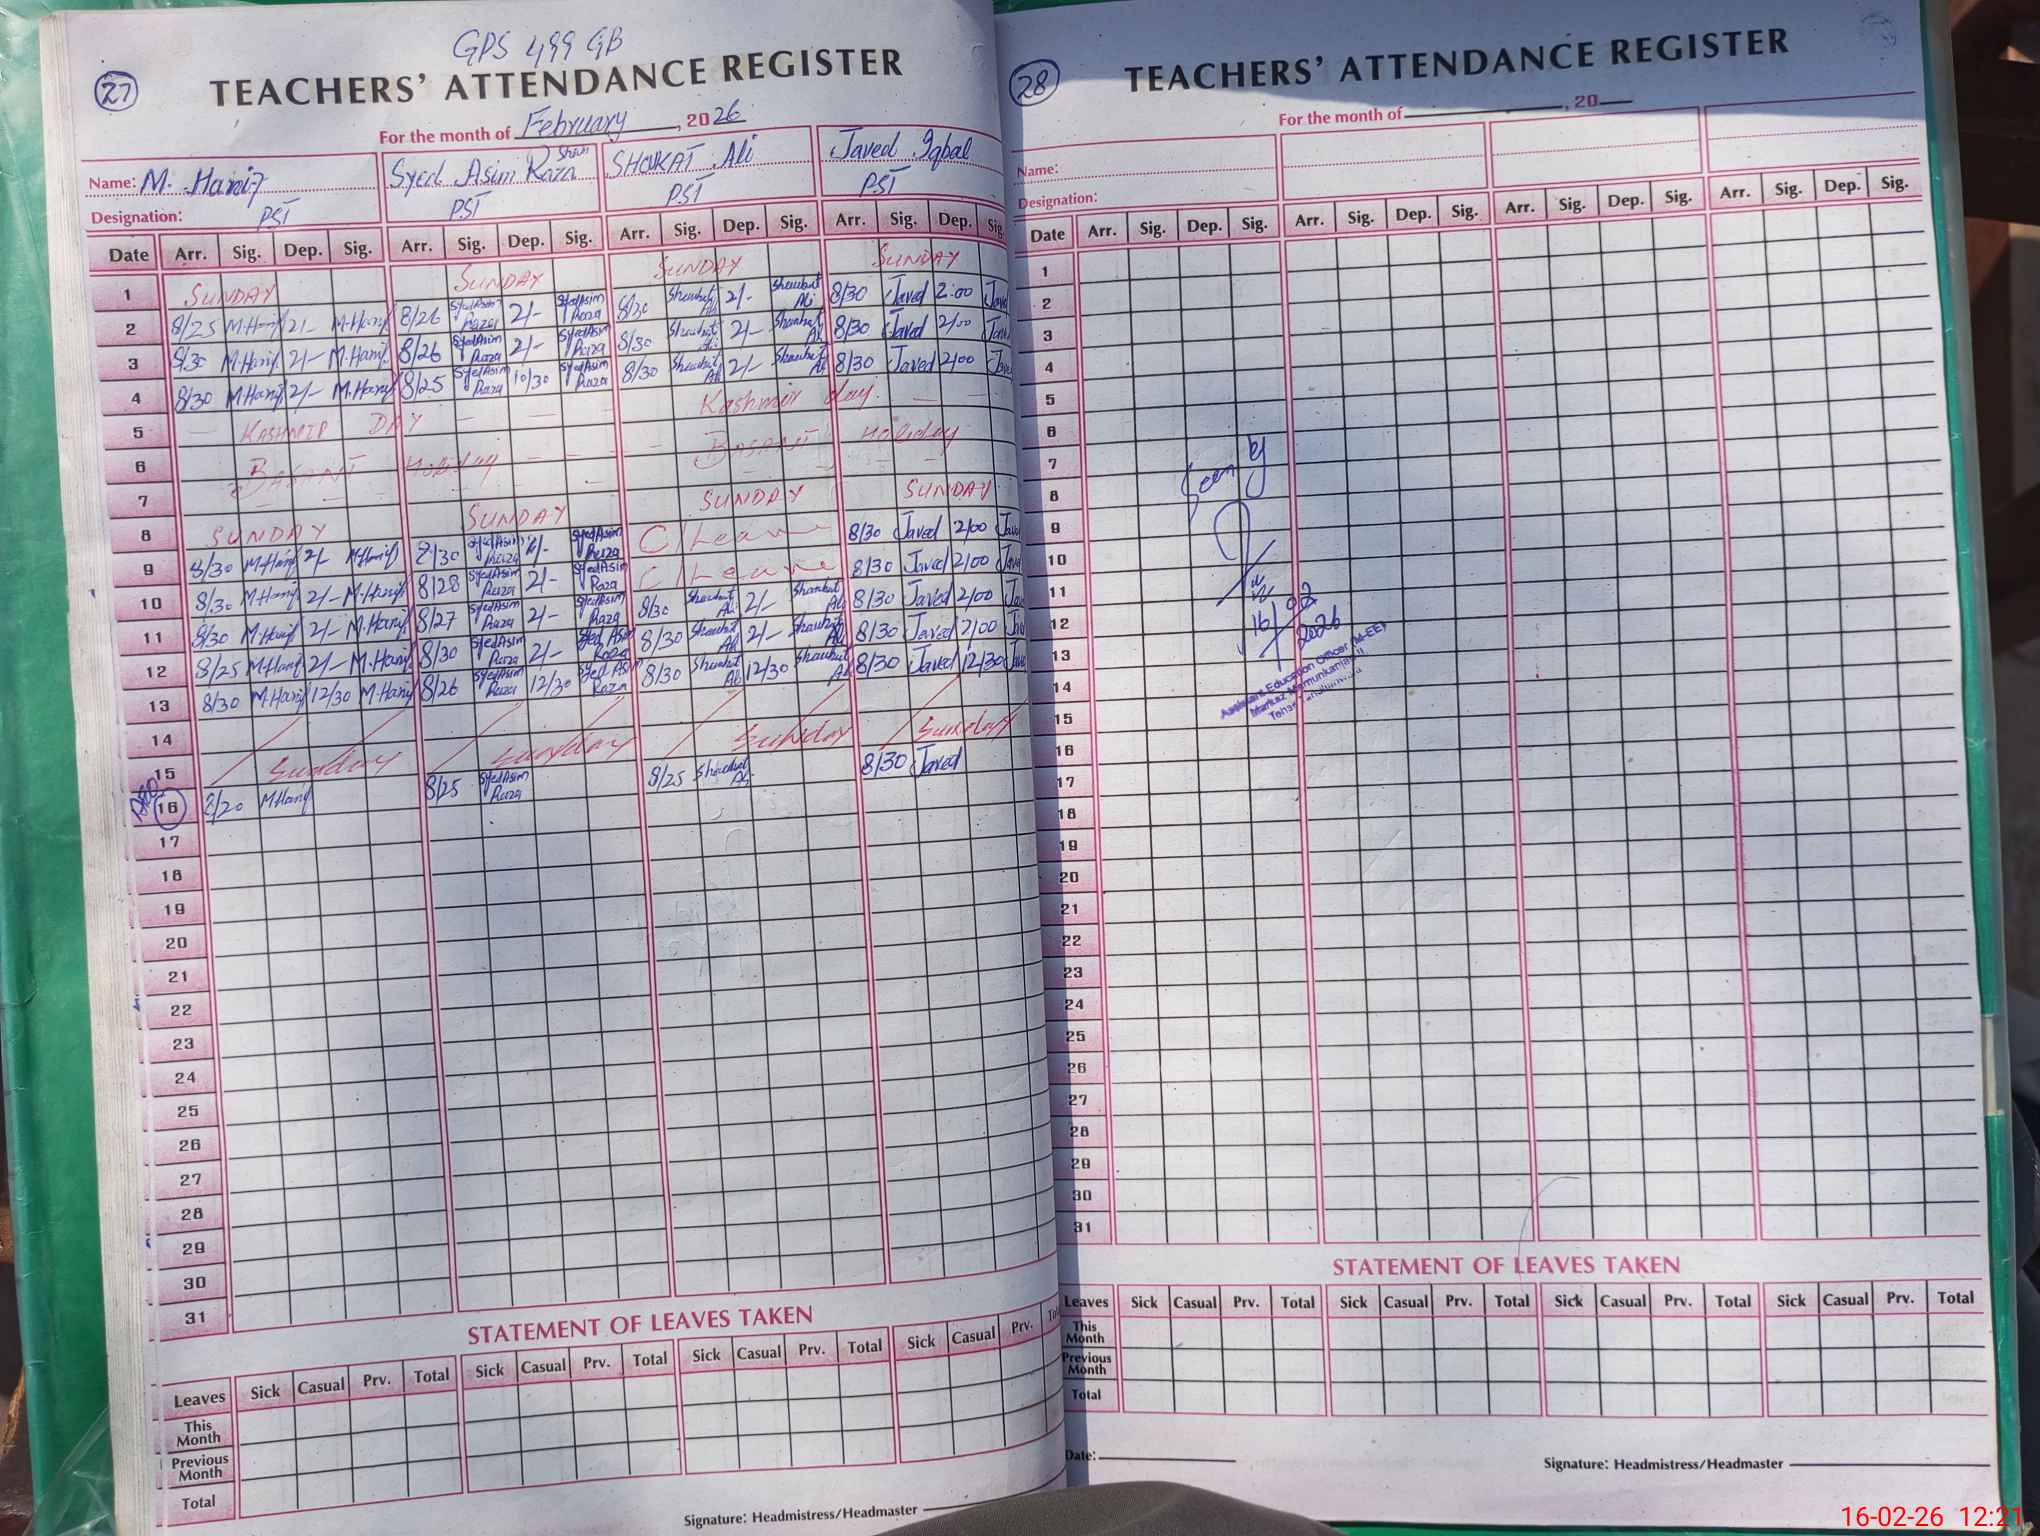 GPS 499 GB
27
TEACHERS' ATTENDANCE REGISTER
For the month of February, 2026
Name: M. Hanif Syed Asim Raza Shah SHOUKAT Ali Javed Iqbal
Designation: PST PST PST PST
Date Arr. Sig. Dep. Sig. Arr. Sig. Dep. Sig. Arr. Sig. Dep. Sig. Arr. Sig. Dep. Sig.
1 SUNDAY SUNDAY SUNDAY SUNDAY
2 8/25 M.Hanif 2/- M.Hanif 8/26 Syed Asim Raza 2/- Syed Asim Raza 8/30 Shoukat Ali 2/- Shoukat Ali 8/30 Javed 2:00 Javed
3 8/30 M.Hanif 2/- M.Hanif 8/26 Syed Asim Raza 2/- Syed Asim Raza 8/30 Shoukat Ali 2/- Shoukat Ali 8/30 Javed 2/00 Javed
4 8/30 M.Hanif 2/- M.Hanif 8/25 Syed Asim Raza 10/30 Syed Asim Raza 8/30 Shoukat Ali 2/- Shoukat Ali 8/30 Javed 2/00 Javed
5 KASHMIR DAY Kashmir day
6 BASANT Holiday BASANT Holiday
7
8 SUNDAY SUNDAY SUNDAY SUNDAY
9 8/30 M.Hanif 2/- M.Hanif 8/30 Syed Asim Raza 2/- Syed Asim Raza C/Leave 8/30 Javed 2/00 Javed
10 8/30 M.Hanif 2/- M.Hanif 8/28 Syed Asim Raza 2/- Syed Asim Raza C/Leave 8/30 Javed 2/00 Javed
11 8/30 M.Hanif 2/- M.Hanif 8/27 Syed Asim Raza 2/- Syed Asim Raza 8/30 Shoukat Ali 2/- Shoukat Ali 8/30 Javed 2/00 Javed
12 8/25 M.Hanif 2/- M.Hanif 8/30 Syed Asim Raza 2/- Syed Asim Raza 8/30 Shoukat Ali 2/- Shoukat Ali 8/30 Javed 2/00 Javed
13 8/30 M.Hanif 12/30 M.Hanif 8/26 Syed Asim Raza 12/30 Syed Asim Raza 8/30 Shoukat Ali 12/30 Shoukat Ali 8/30 Javed 12/30 Javed
14
15 Sunday Sunday Sunday Sunday
16 8/20 M.Hanif 8/25 Syed Asim Raza 8/25 Shoukat Ali 8/30 Javed
17
18
19
20
21
22
23
24
25
26
27
28
29
30
31
STATEMENT OF LEAVES TAKEN
Leaves Sick Casual Prv. Total Sick Casual Prv. Total Sick Casual Prv. Total Sick Casual Prv.
This Month
Previous Month
Total
Signature: Headmistress/Headmaster
28
TEACHERS' ATTENDANCE REGISTER
For the month of , 20
Name:
Designation:
Date Arr. Sig. Dep. Sig. Arr. Sig. Dep. Sig. Arr. Sig. Dep. Sig. Arr. Sig. Dep. Sig.
1
2
3
4
5
6
7
8
9
10
11
12
13
14
15
16
17
18
19
20
21
22
23
24
25
26
27
28
29
30
31
Seen by
16/02
2026
Assistant Education Officer (M-EE)
Markaz Mamunkanjan
STATEMENT OF LEAVES TAKEN
Leaves Sick Casual Prv. Total Sick Casual Prv. Total Sick Casual Prv. Total Sick Casual Prv. Total
This Month
Previous Month
Total
Date:
Signature: Headmistress/Headmaster
16-02-26 12:21